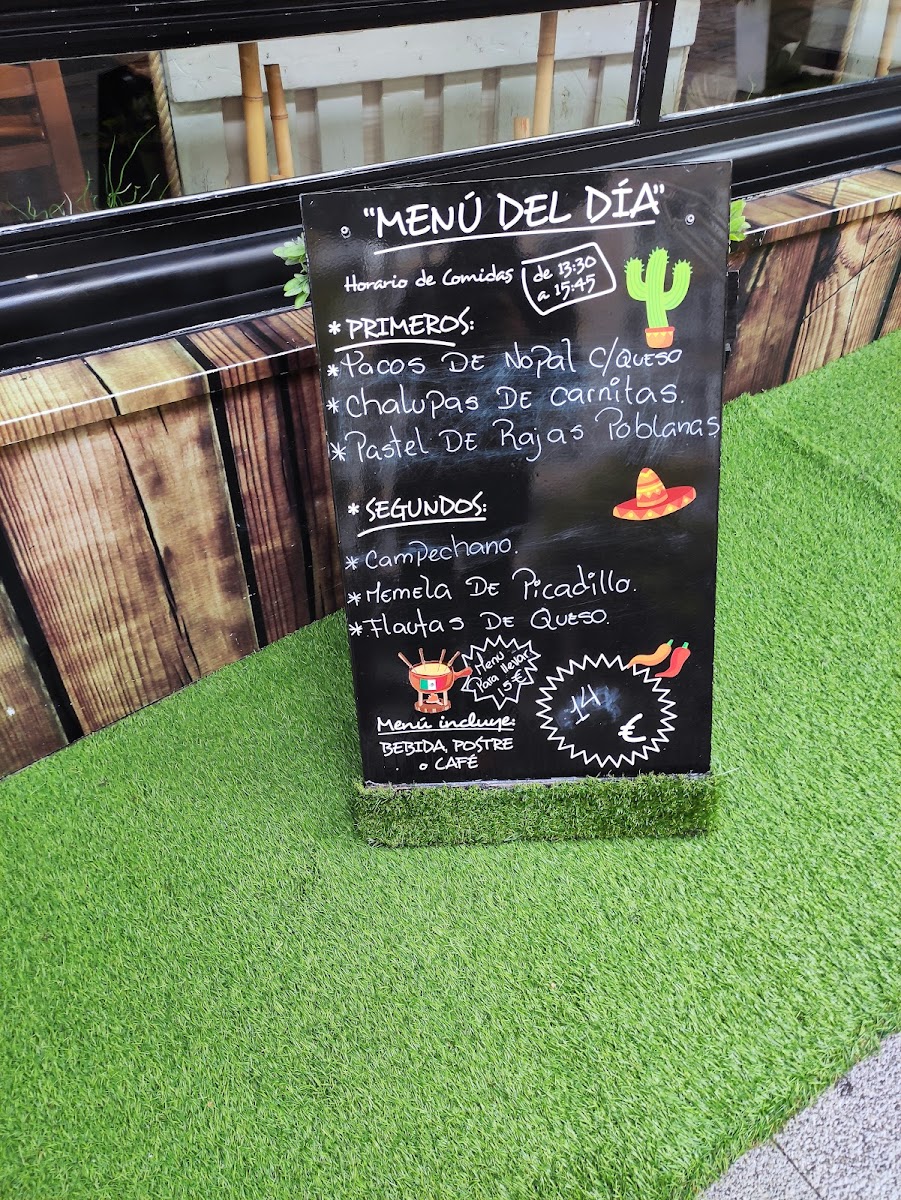 "MENÚ DEL DÍA"
Horario de Comidas de 13:30
a 15:45
* PRIMEROS:
* Tacos DE Nopal C/QUESO
* Chalupas DE carnitas.
* Pastel DE Rajas Poblanas
* SEGUNDOS:
* Campechano.
* Memela DE Picadillo.
* Flautas DE QUESO.
Menu
Para llevar
15€
14
€
Menú incluye:
BEBIDA, POSTRE
o CAFÉ